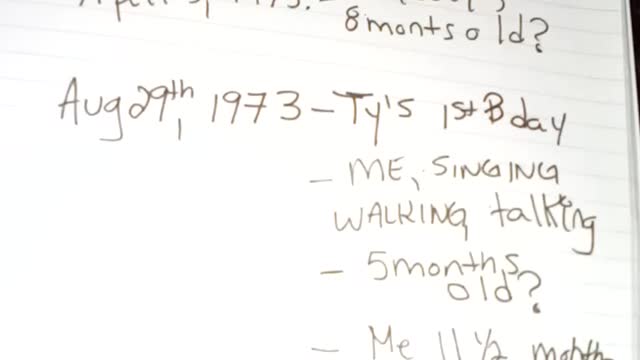 8 monts old?
Aug 29th, 1973 - Ty's 1st B day
- ME, SINGING
WALKING talking
- 5 months
old?
- Me 11 1/2